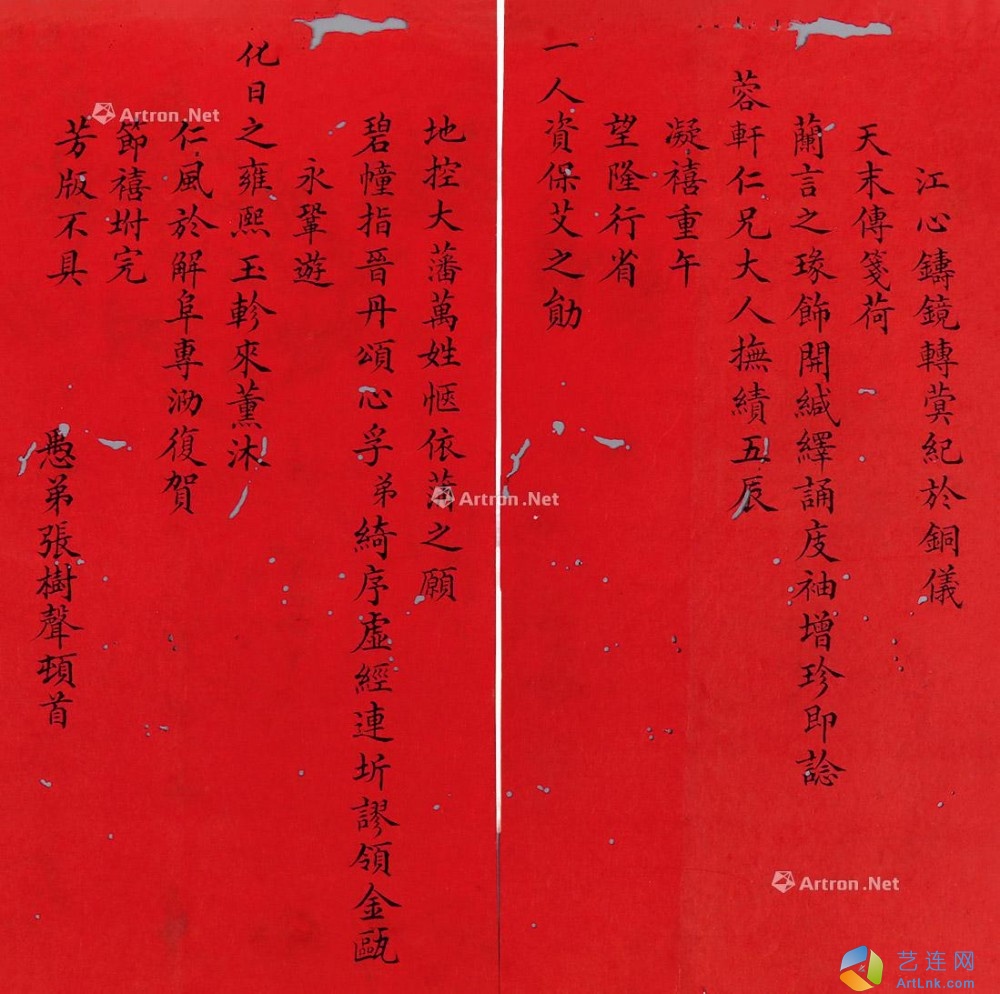 江心鑄鏡轉蓂紀於銅儀
天末傳箋荷
蘭言之瑑飾開緘繹誦庋袖增珍即諗
蓉軒仁兄大人撫績五辰
凝禧重午
望隆行省
一人資保艾之勛
地控大藩萬姓愜依蒲之願
碧幢指晉丹頌心孚弟綺序虛經連圻謬領金甌
永鞏遊
化日之雍熙玉軫來薰沐
仁風於解阜專泐復賀
節禧坿完
芳版不具
愚弟張樹聲頓首
Artron.Net
Artron.Net
Artron.Net
艺连网
ArtLnk.com